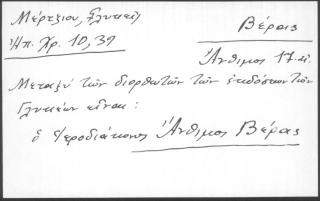 Μέρτζιου, Γλυκεῖς
Ἠπ. Χρ. 10, 39
Βέρας
Ἄνθιμος 17 αἰ.
Μεταξὺ τῶν διορθωτῶν τῶν ἐκδόσεων τῶν
Γλυκέων εἶναι :
ὁ ἱεροδιάκονος Ἄνθιμος Βέρας